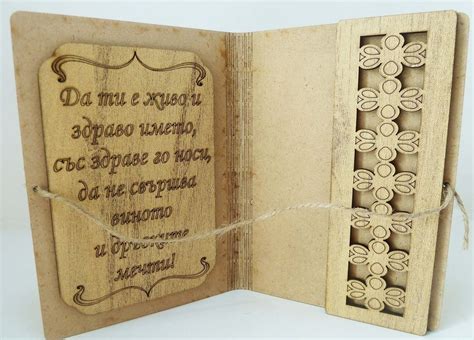 Да ти е живо и
здраво името,
със здраве го носи,
да не свършва
виното
и дръзките
мечти!